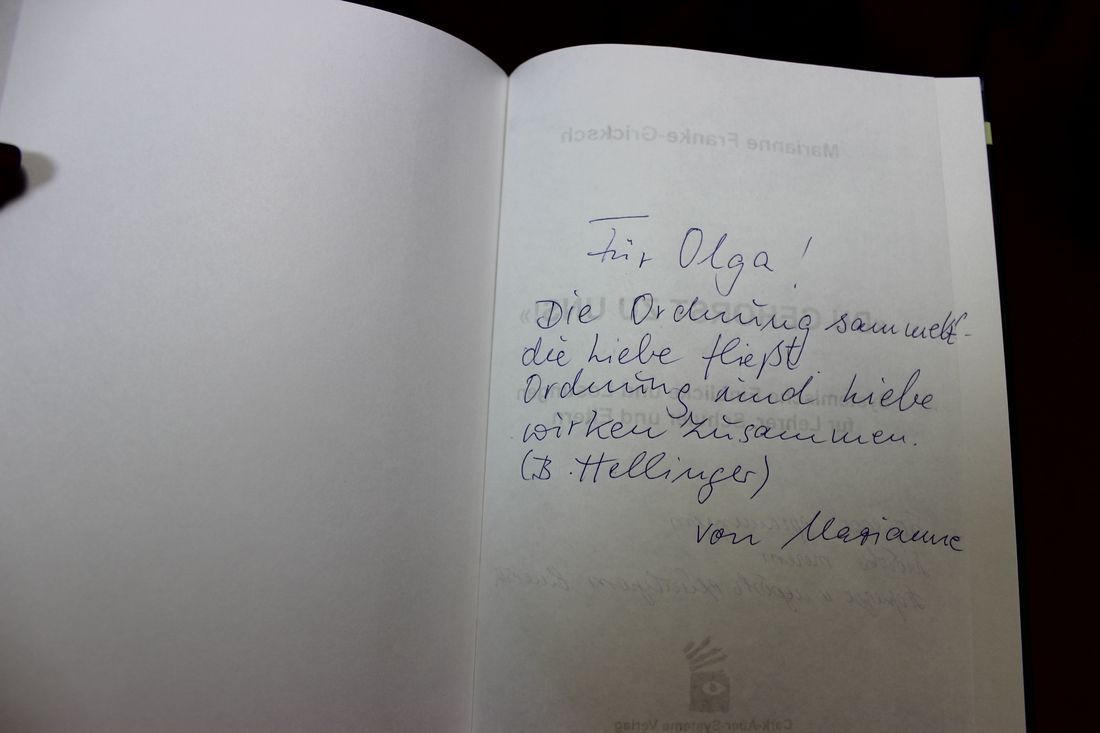 Marianne Franke-Gricksch
Für Olga!
«DU GEHÖRST ZU UNS!»
Die Ordnung sammelt -
die Liebe fließt.
Ordnung und Liebe
für Lehrer, Schüler und Eltern
wirken zusammen.
(B. Hellinger)
von Marianne
Carl-Auer-Systeme Verlag